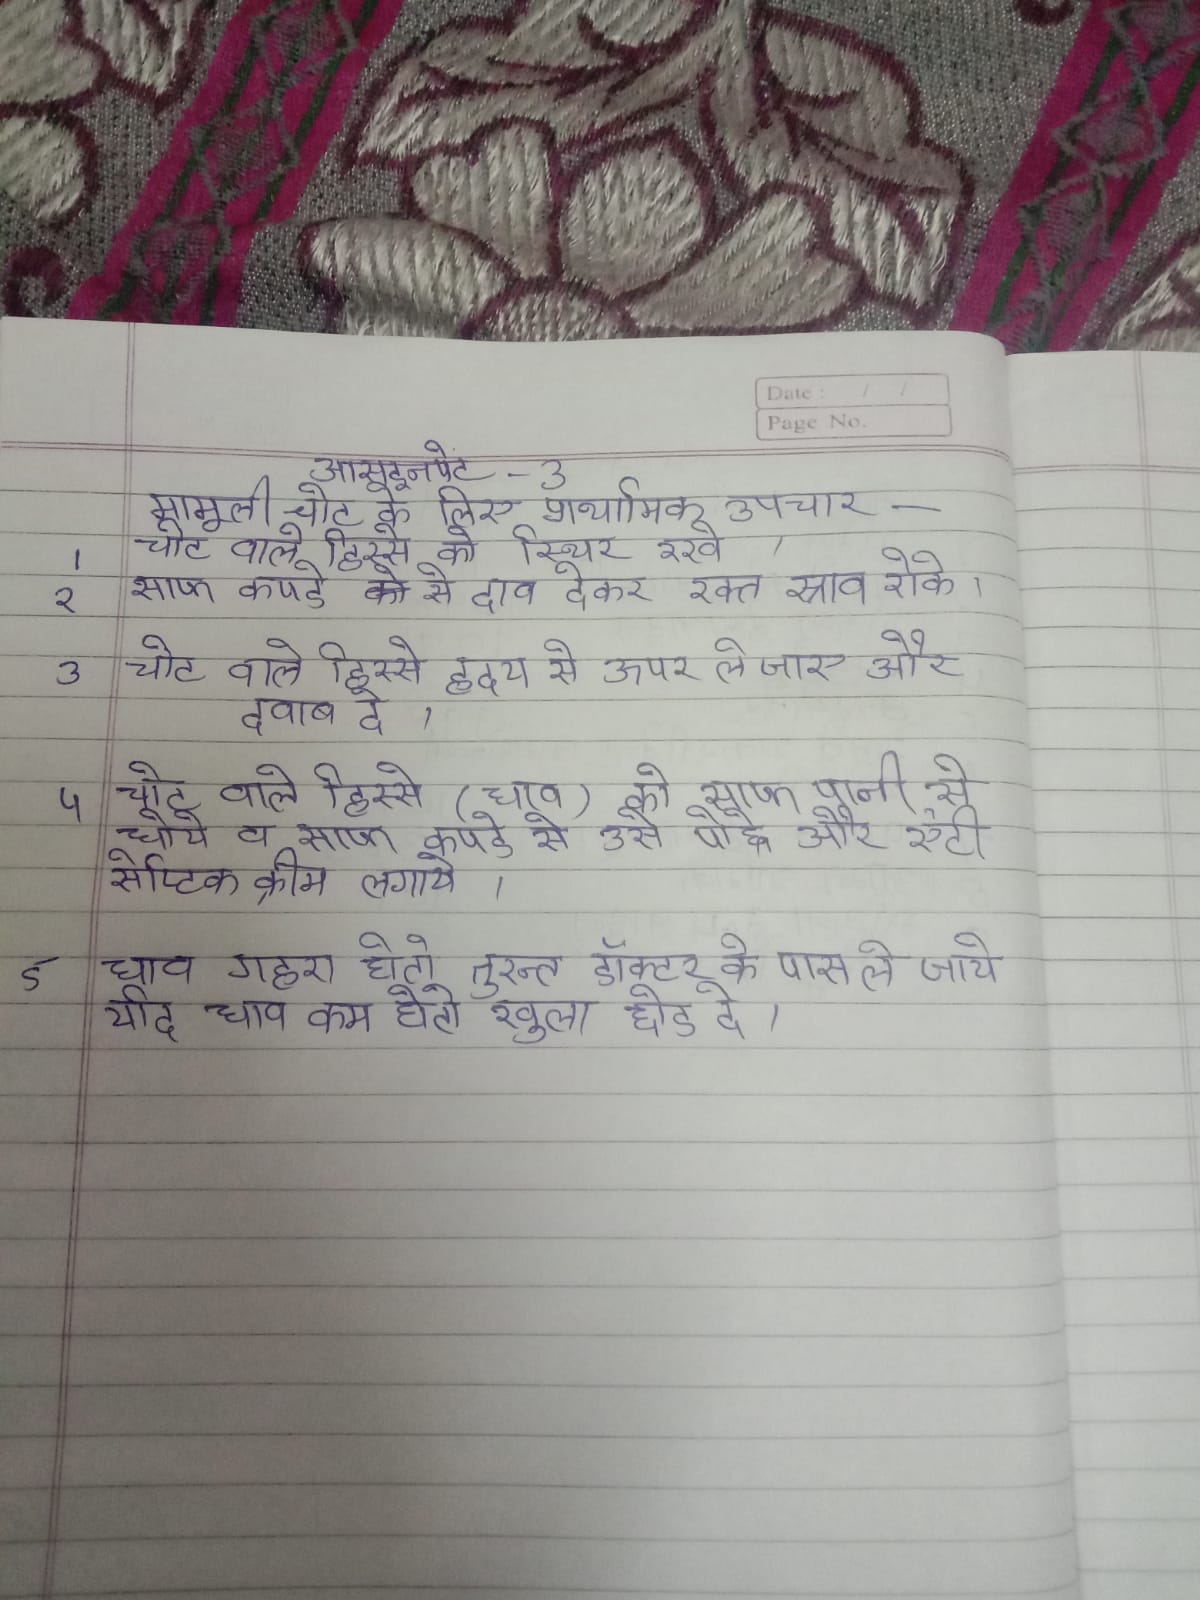 Date : / /
Page No.
आसइनपेंट - 3
मामूली चोट के लिए प्राथमिक उपचार -
1 चोट वाले हिस्से को स्थिर रखे ।
2 साफ कपडे से दाव देकर रक्त स्राव रोके ।
3 चोट वाले हिस्से हृदय से ऊपर ले जाए और
दवाब दे ।
4 चोट वाले हिस्से (घाव) को साफ पानी से
धोये व साफ कपडे से उसे पोछे और एंटी
सेप्टिक क्रीम लगाये ।
5 घाव गहरा होतो तुरन्त डॉक्टर के पास ले जाये
यदि घाव कम होतो खुला छोड दे ।